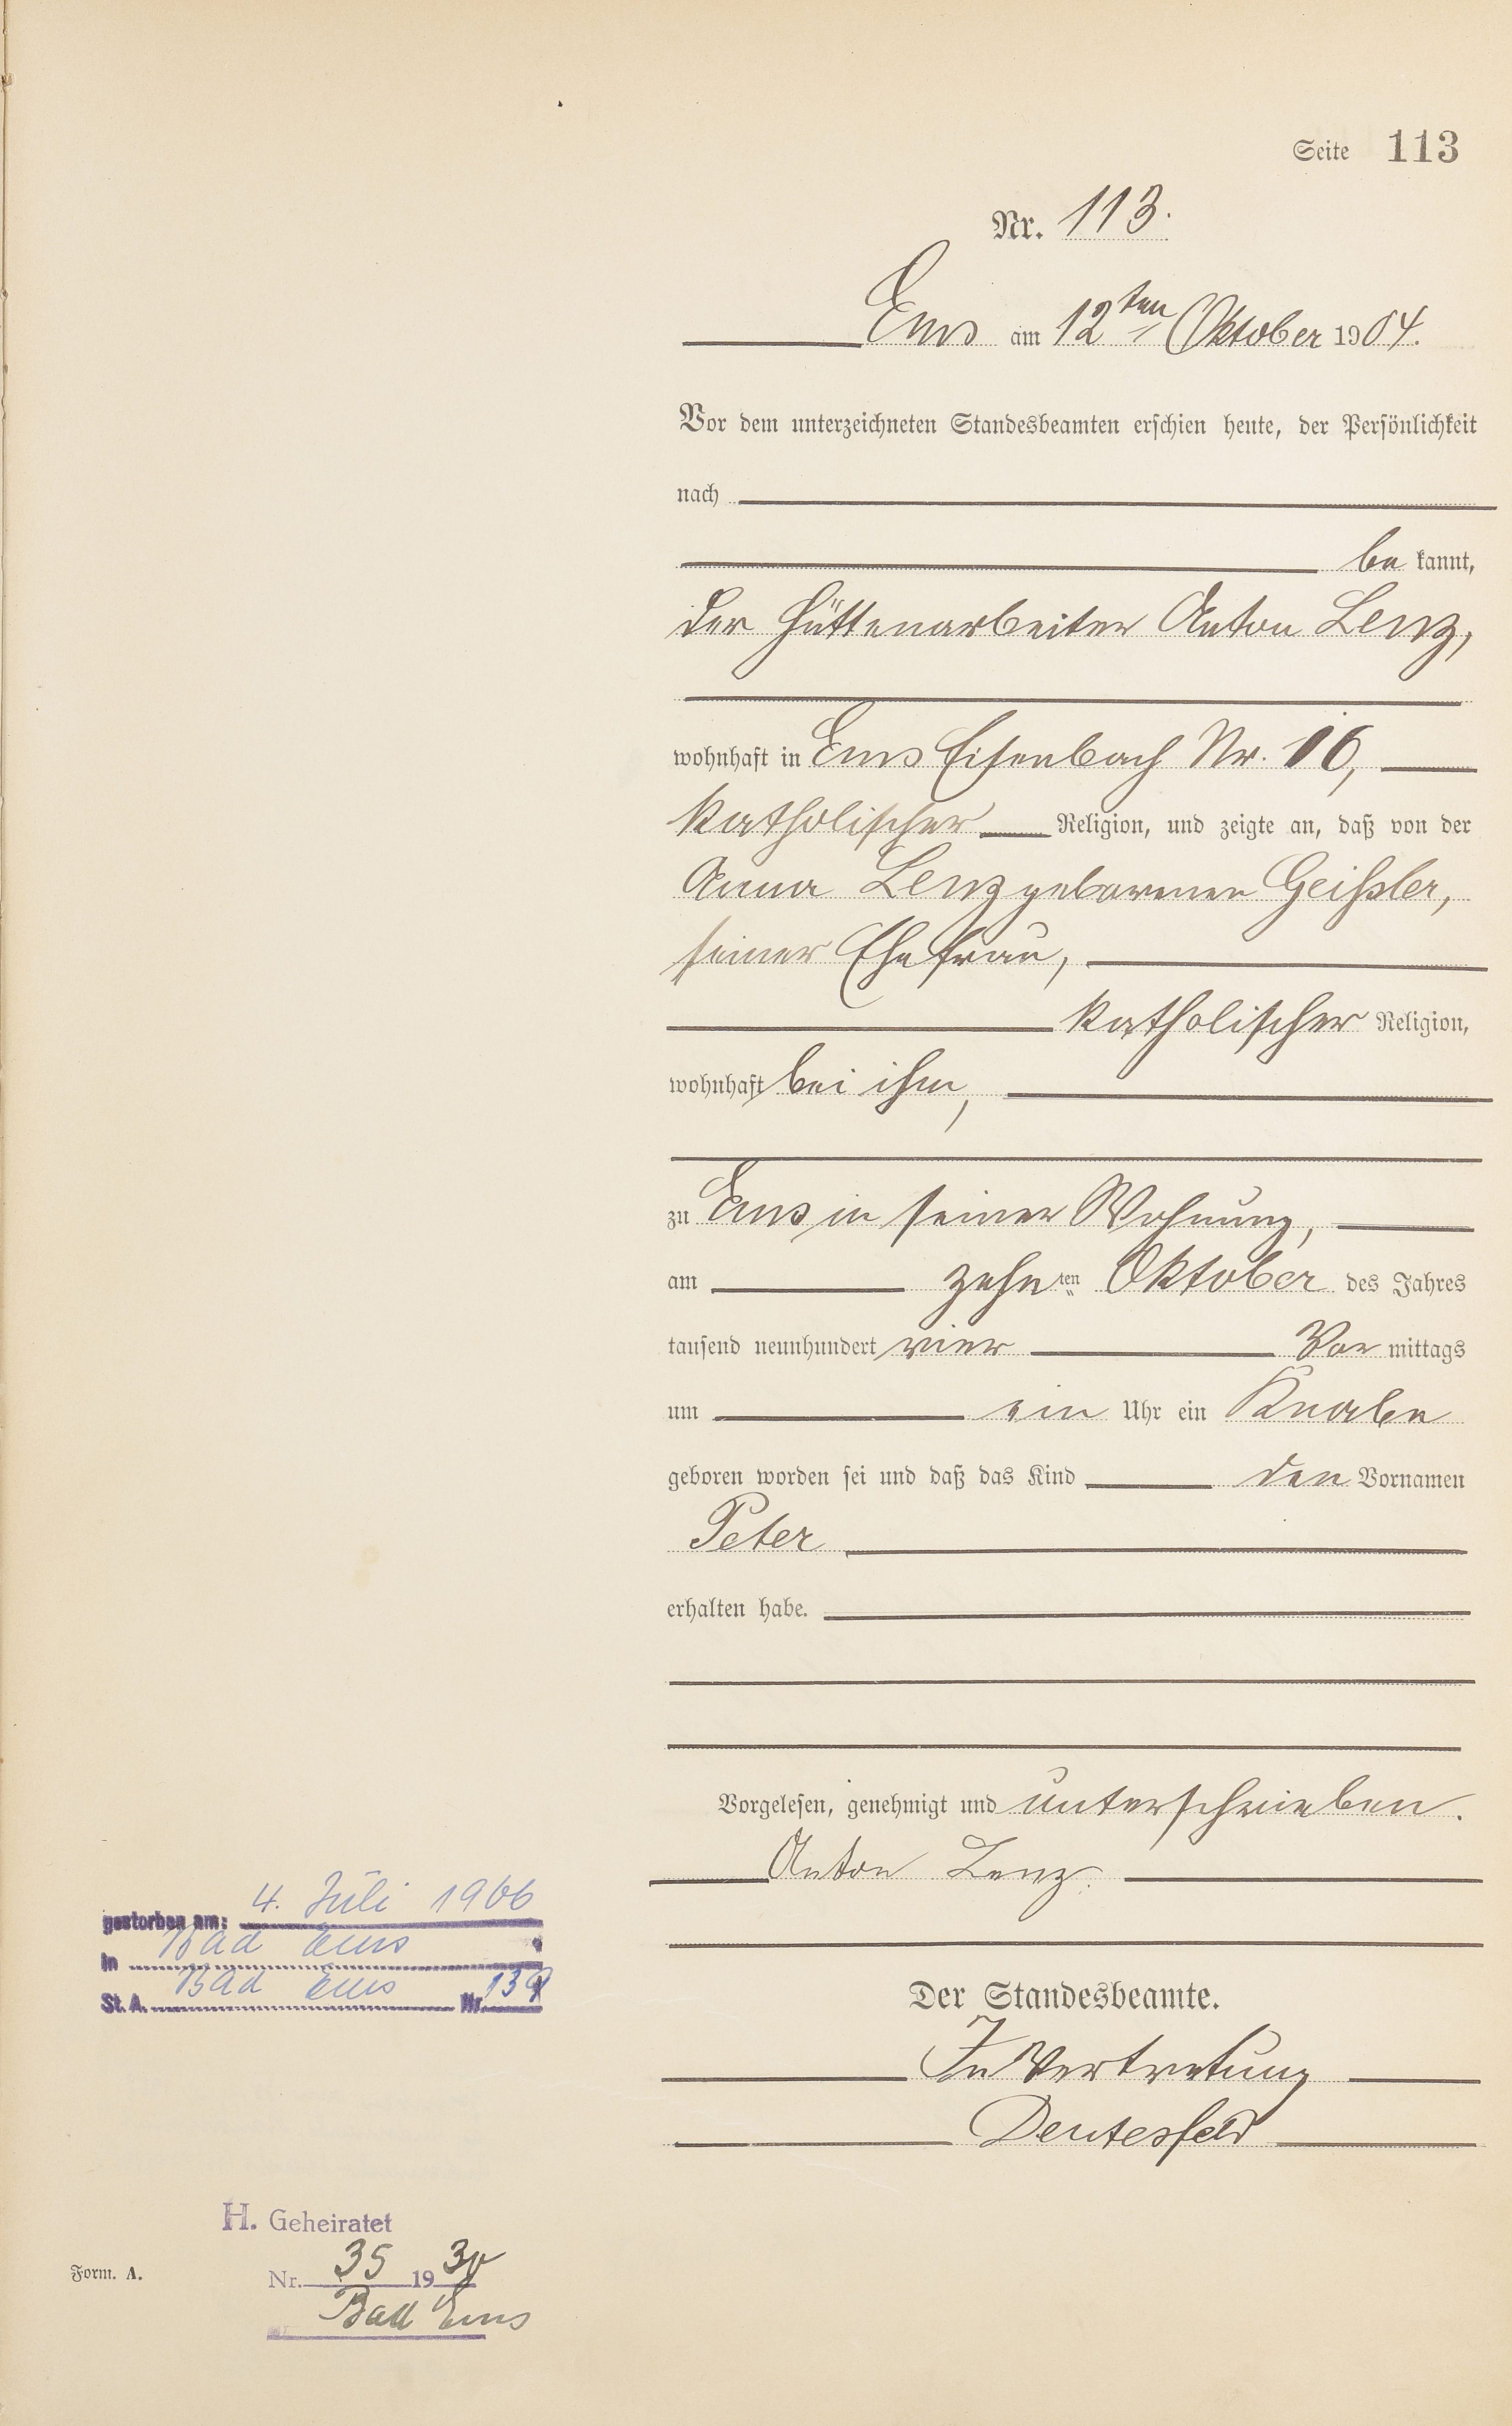 Seite 113
Nr. 113.
Ems am 12ten Oktober 1904.
Vor dem unterzeichneten Standesbeamten erschien heute, der Persönlichkeit
nach
be kannt,
der Hüttenarbeiter Anton Lenz,
wohnhaft in Ems Eisenbach Nr. 16,
katholischer Religion, und zeigte an, daß von der
Anna Lenz geborenen Geißler,
seiner Ehefrau,
katholischer Religion,
wohnhaft bei ihm,
zu Ems in seiner Wohnung,
am zehnten Oktober des Jahres
tausend neunhundert vier Vor mittags
um ein Uhr ein Knabe
geboren worden sei und daß das Kind den Vornamen
Peter
erhalten habe.
Vorgelesen, genehmigt und unterschrieben.
Anton Lenz.
Der Standesbeamte.
In Vertretung
Deutesfeld
gestorben am: 4. Juli 1966
in Bad Ems
St. A. Bad Ems Nr. 139
H. Geheiratet
Nr. 35 19
Bad Ems
Form. A.